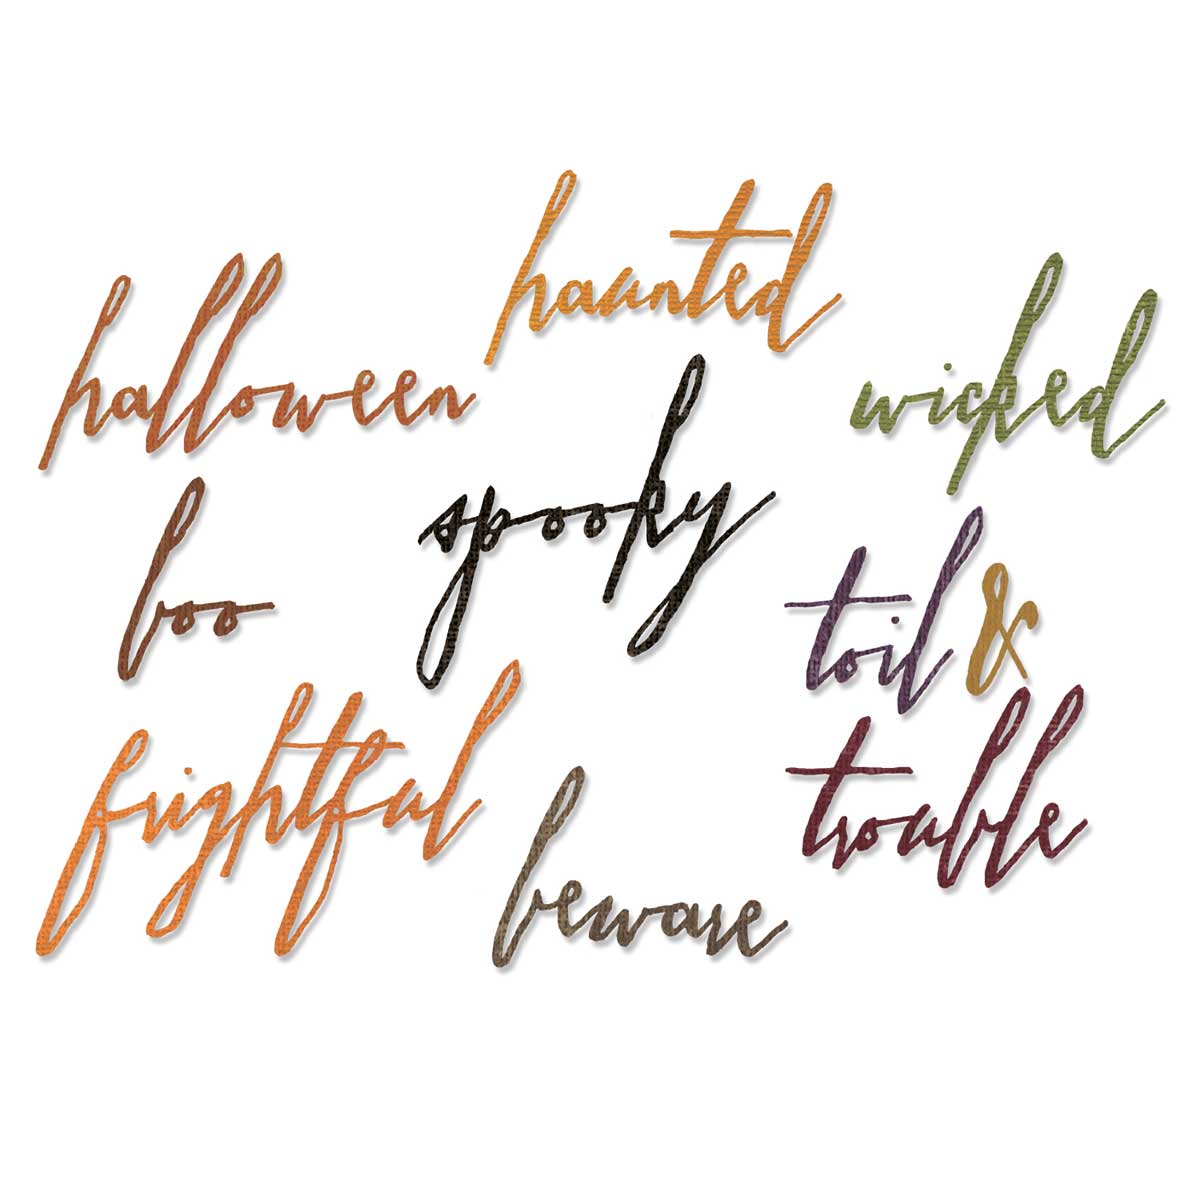 haunted
halloween
wicked
spooky
boo
toil &
trouble
frightful
beware